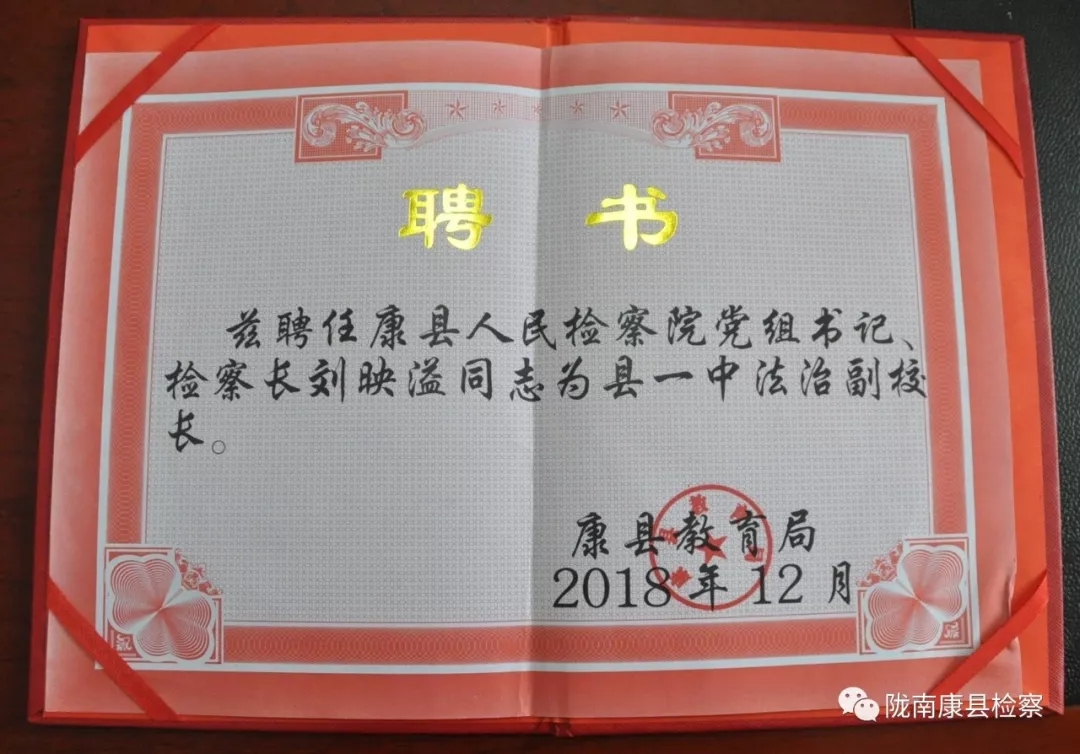 聘书
兹聘任康县人民检察院党组书记、
检察长刘映溢同志为县一中法治副校
长。
康县教育局
2018年12月
陇南康县检察